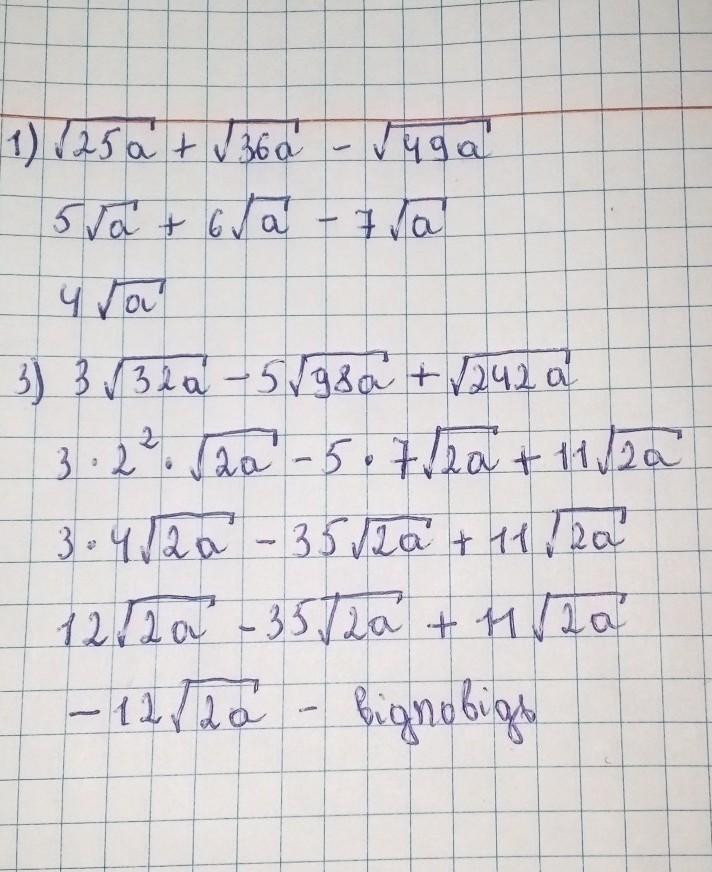 1) √25a + √36a - √49a
5√a + 6√a - 7√a
4√a
3) 3√32a - 5√98a + √242a
3 · 2² · √2a - 5 · 7√2a + 11√2a
3 · 4√2a - 35√2a + 11√2a
12√2a - 35√2a + 11√2a
-12√2a - відповідь